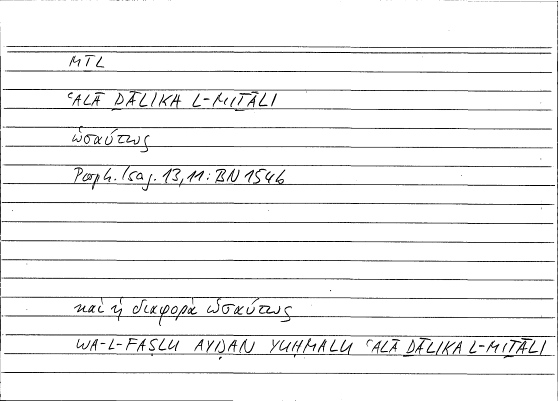 MṮL
ʿALĀ ḎĀLIKA L-MIṮĀLI
ὡσαύτως
Porph. Isag. 13,11: BN 154b
καὶ ἡ διαφορὰ ὡσαύτως
WA-L-FAṢLU AYḌAN YUḤMALU ʿALĀ ḎĀLIKA L-MIṮĀLI